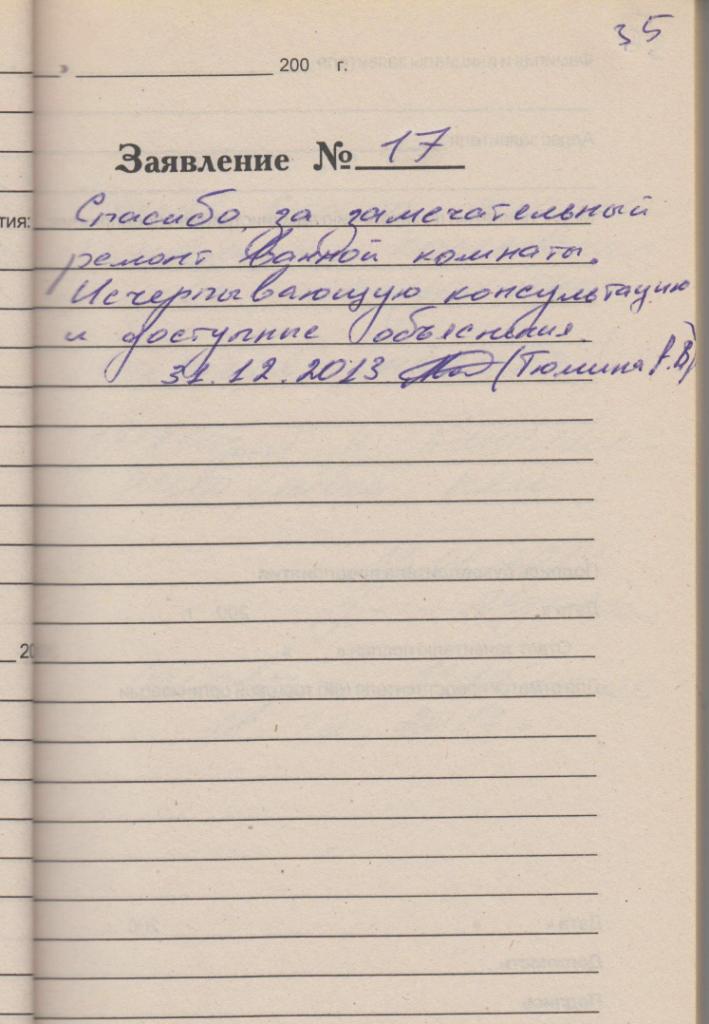 35
200 г.
Заявление № 17
тия:
Спасибо, за замечательный
ремонт Ванной комнаты.
Исчерпывающую консультацию
и доступные объяснения.
31.12.2013 (Тюмина А.В)
20